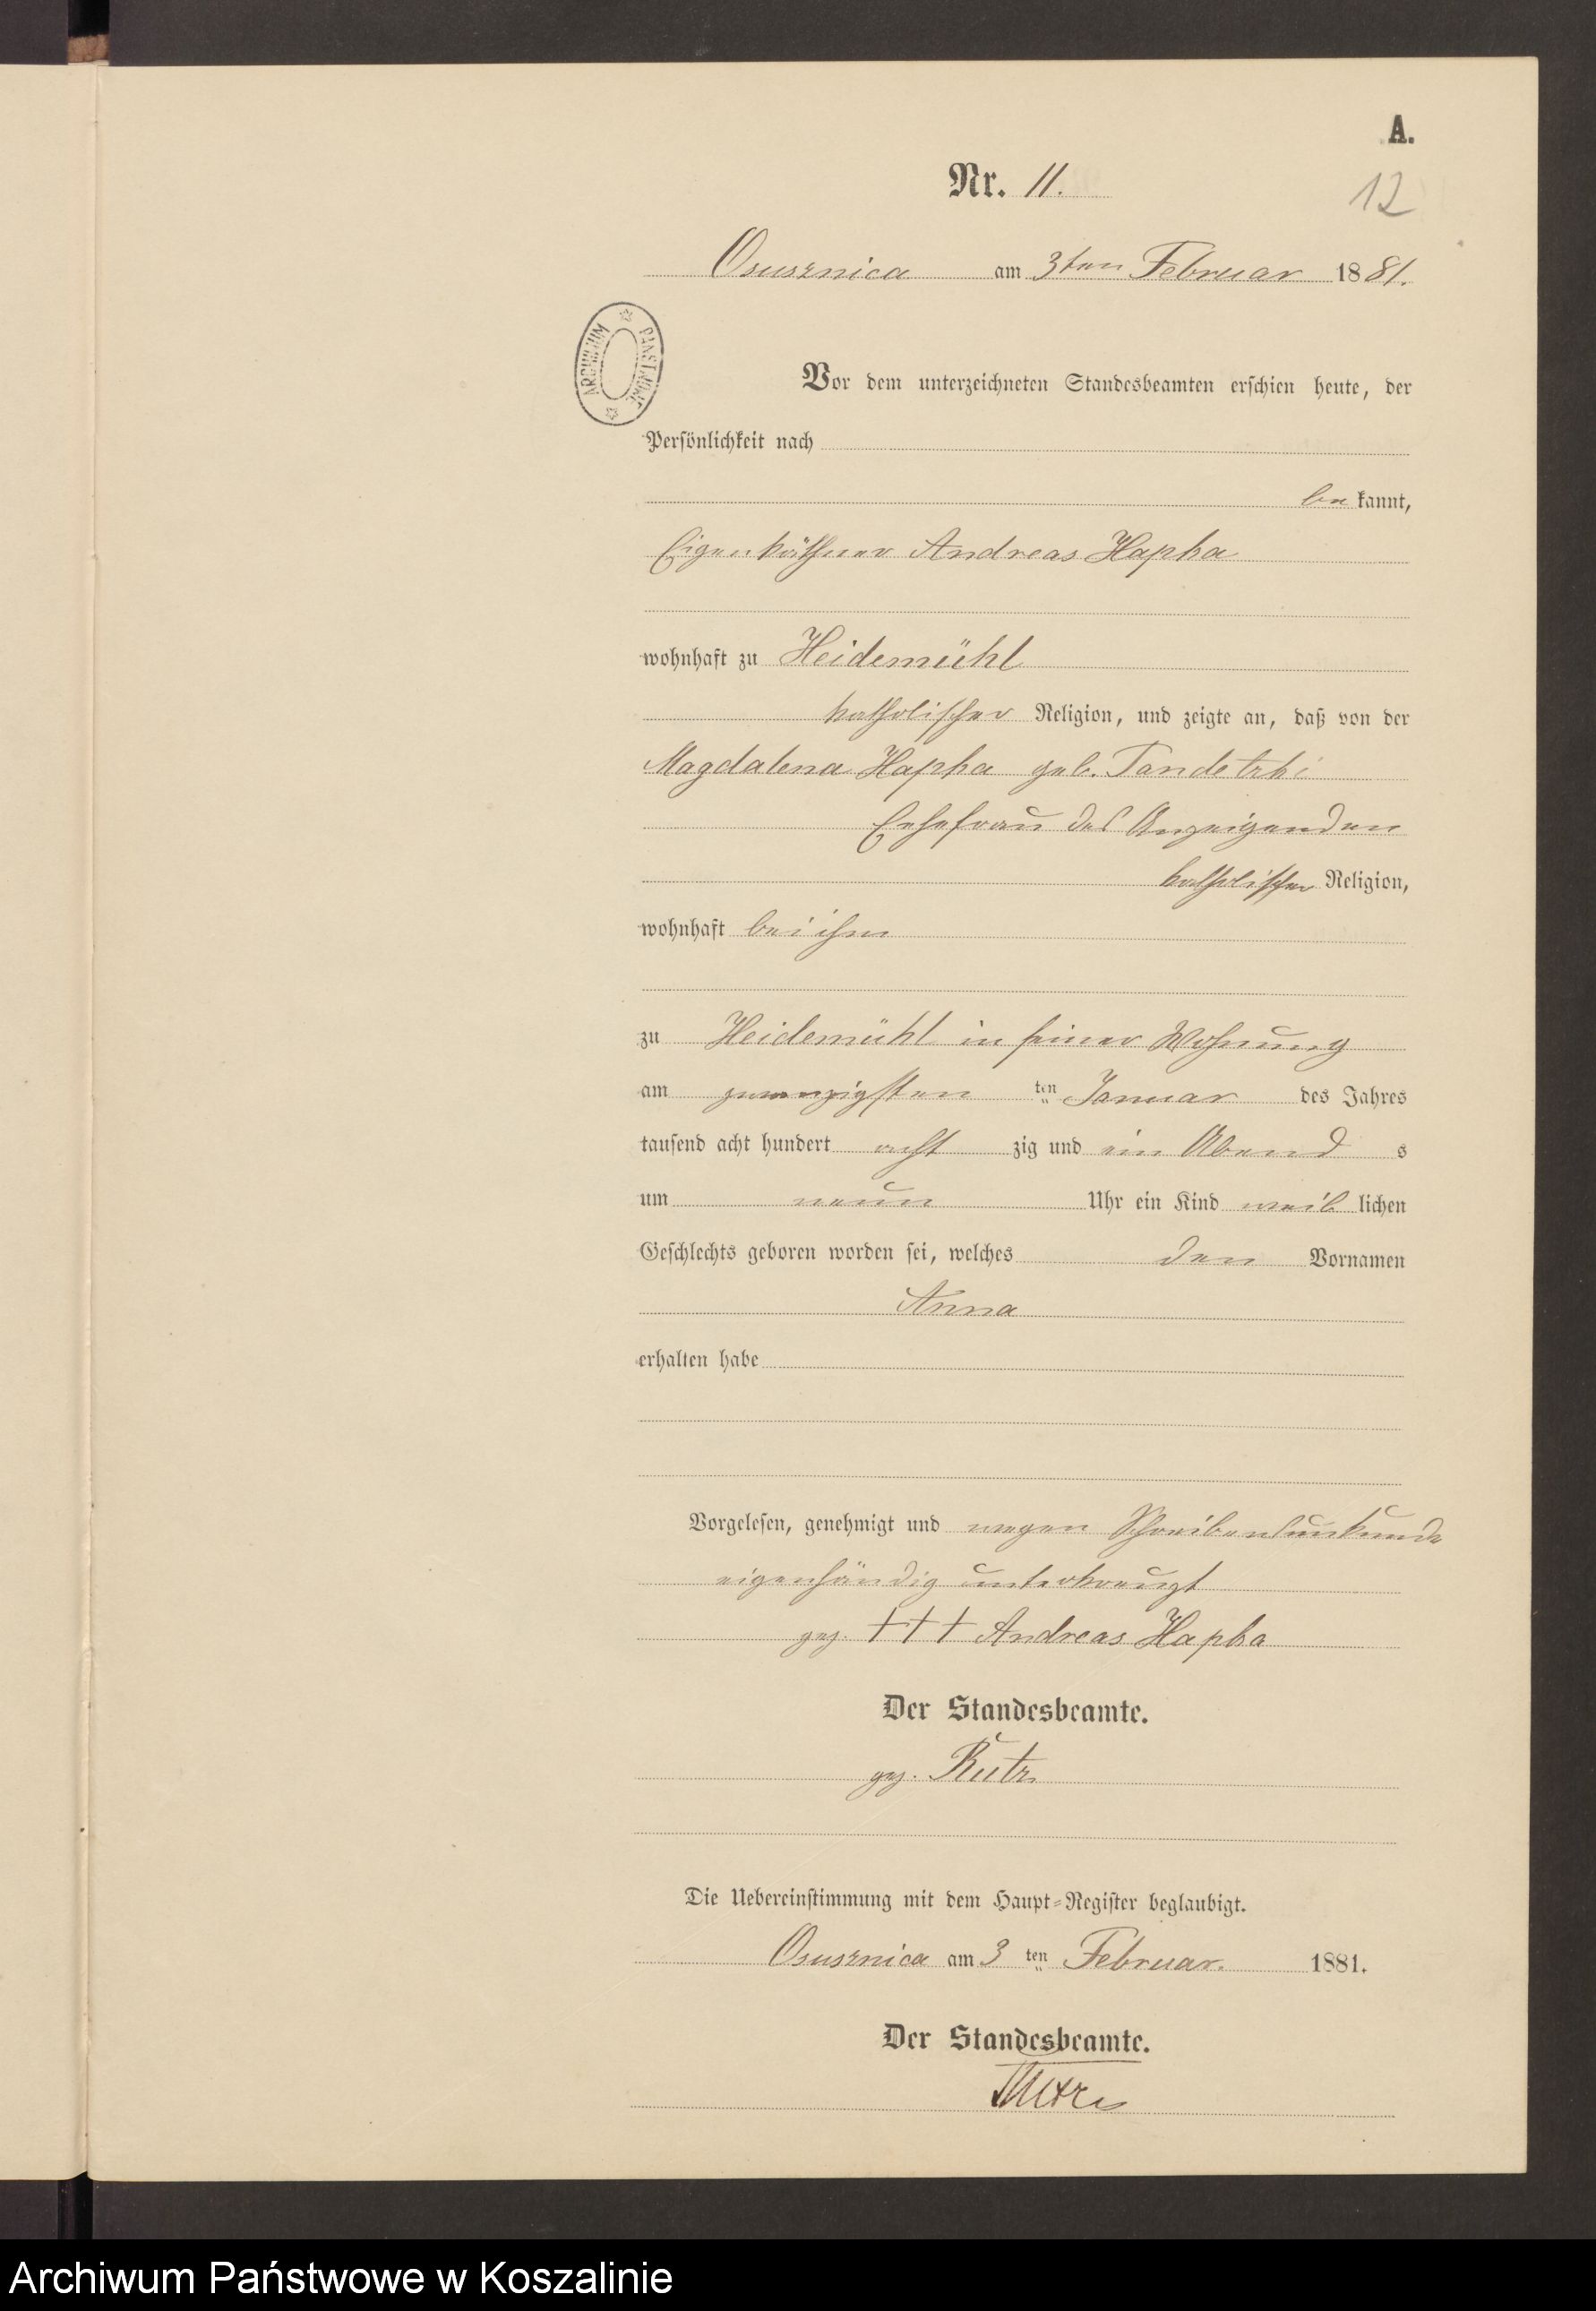 A.
Nr. 11.
12
Osusznica am 3ten Februar 1881.
ARCHIWUM PAŃSTWOWE
Vor dem unterzeichneten Standesbeamten erschien heute, der
Persönlichkeit nach
be kannt,
Eigenkäthner Andreas Hapka
wohnhaft zu Heidemühl
katholischer Religion, und zeigte an, daß von der
Magdalena Hapka geb. Tandetzki
Ehefrau des Anzeigenden
katholischer Religion,
wohnhaft bei ihm
zu Heidemühl in seiner Wohnung
am zwanzigsten ten Januar des Jahres
tausend acht hundert acht zig und ein Abend s
um neun Uhr ein Kind weib lichen
Geschlechts geboren worden sei, welches den Vornamen
Anna
erhalten habe
Vorgelesen, genehmigt und wegen Schreibensunkunde
eigenhändig unterkreuzt
gez. +++ Andreas Hapka
Der Standesbeamte.
gez. Rutz
Die Uebereinstimmung mit dem Haupt-Register beglaubigt.
Osusznica am 3 ten Februar. 1881.
Der Standesbeamte.
Archiwum Państwowe w Koszalinie